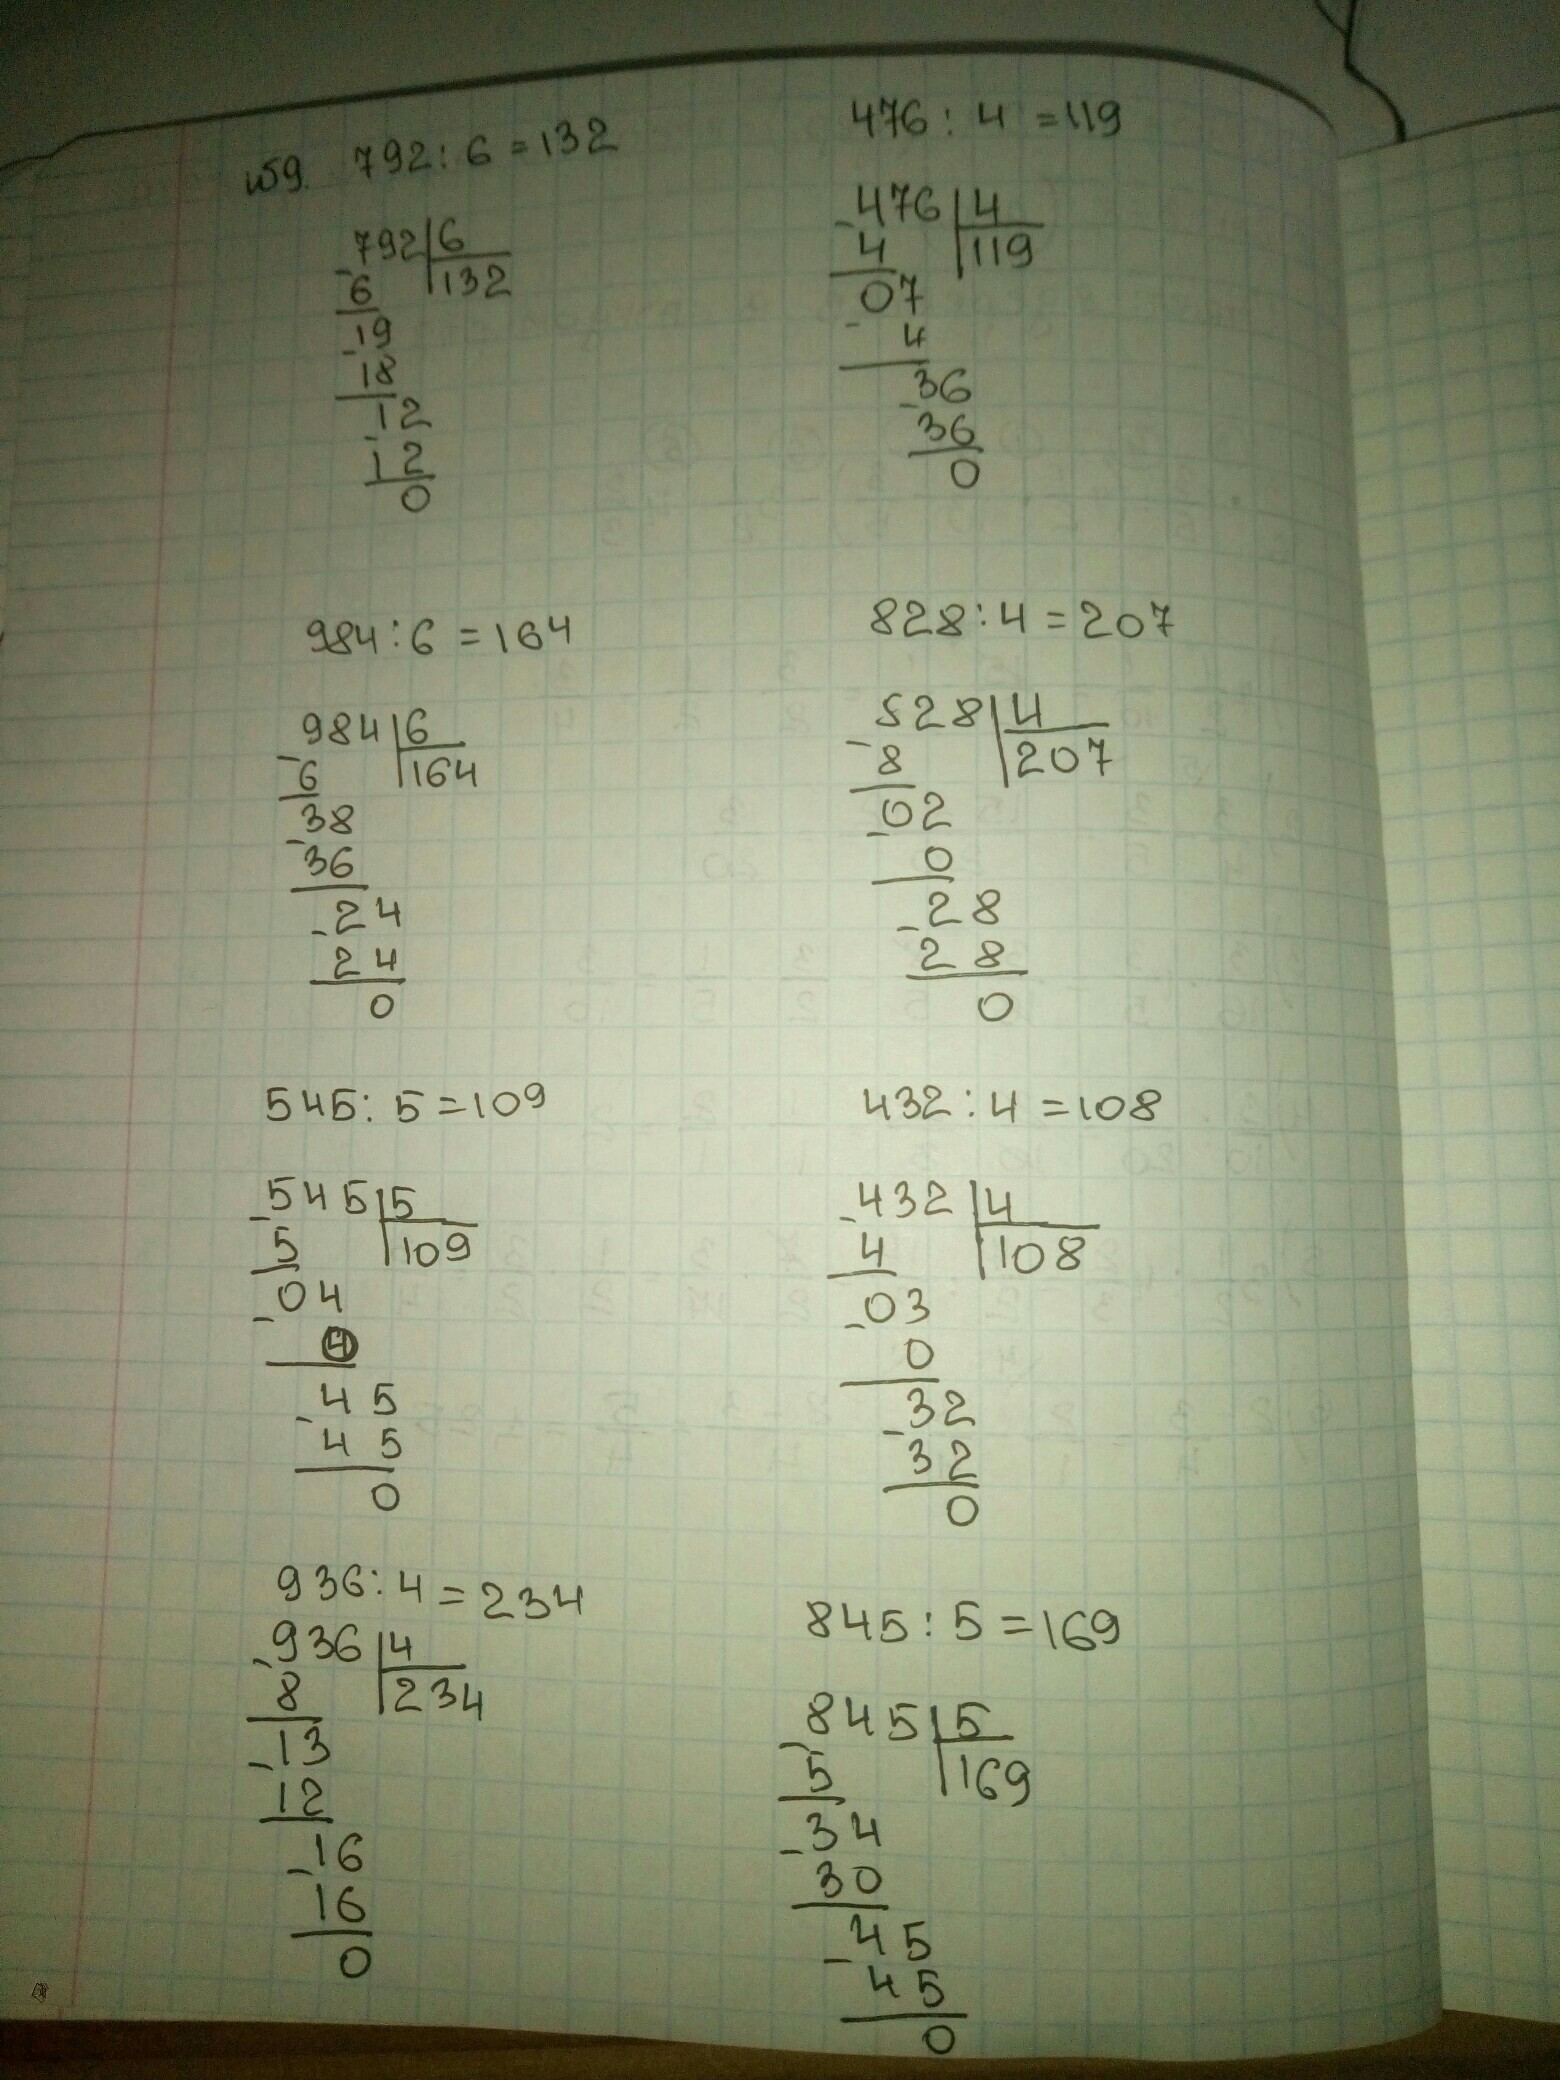 №9. 792 : 6 = 132
792 6
6 132
19
18
12
12
0
476 : 4 = 119
476 4
4 119
07
4
36
36
0
984 : 6 = 164
984 6
6 164
38
36
24
24
0
828 : 4 = 207
828 4
8 207
02
0
28
28
0
545 : 5 = 109
545 5
5 109
04
0
45
45
0
432 : 4 = 108
432 4
4 108
03
0
32
32
0
936 : 4 = 234
936 4
8 234
13
12
16
16
0
845 : 5 = 169
845 5
5 169
34
30
45
45
0